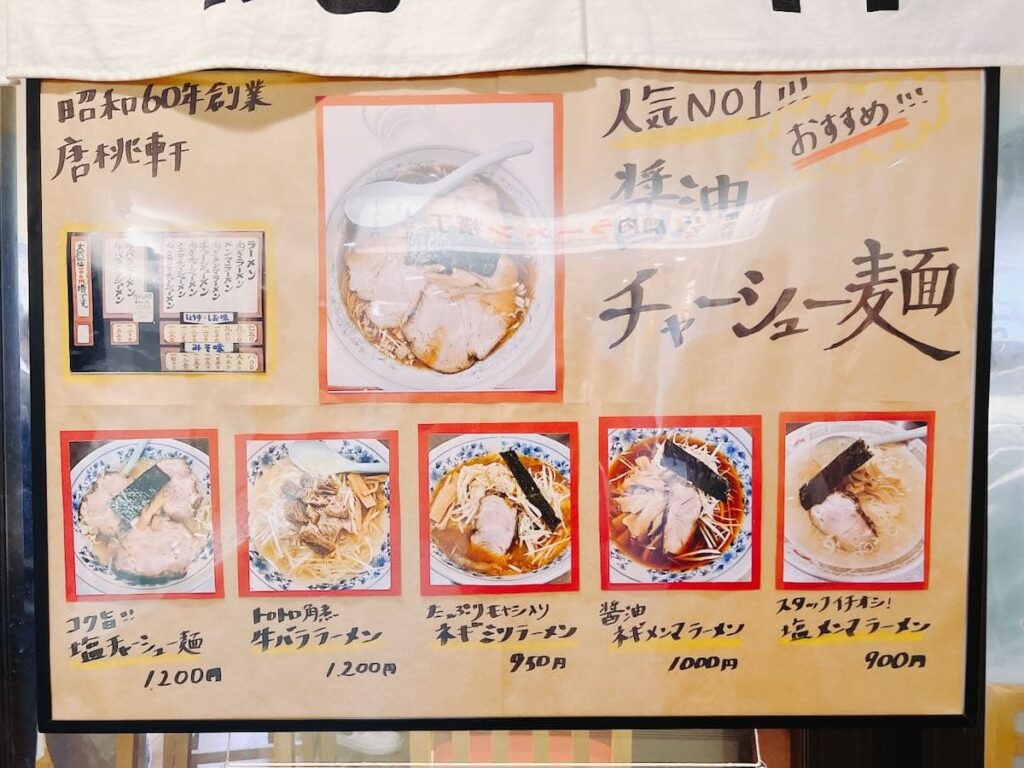 昭和60年創業
唐桃軒
人気NO1!!!
おすすめ!!!
醤油
チャーシュー麺
ラーメン
みそ味
コク旨!!!
塩チャーシュー麺
1,200円
トロトロ角煮
牛バララーメン
1,200円
たっぷりモヤシ入り
ネギミソラーメン
950円
醤油
ネギメンマラーメン
1000円
スタッフイチオシ!
塩メンマラーメン
900円